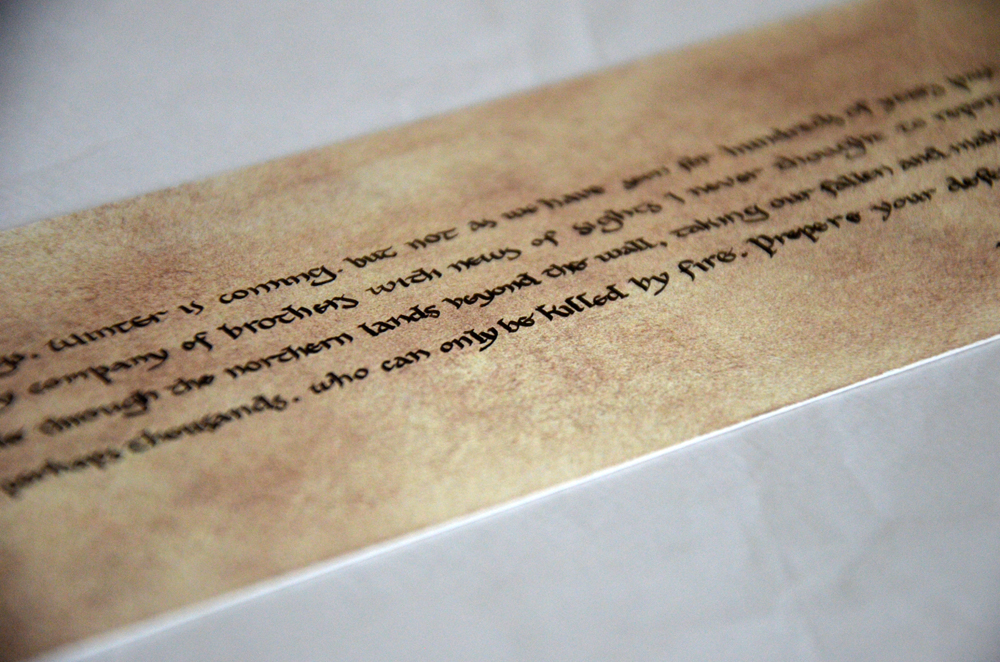 Winter is coming. but not as we have seen for hundreds of years
company of brothers with news of sights I never thought to report
through the northern lands beyond the wall, taking our fallen and
perhaps thousands. who can only be killed by fire. Prepere your